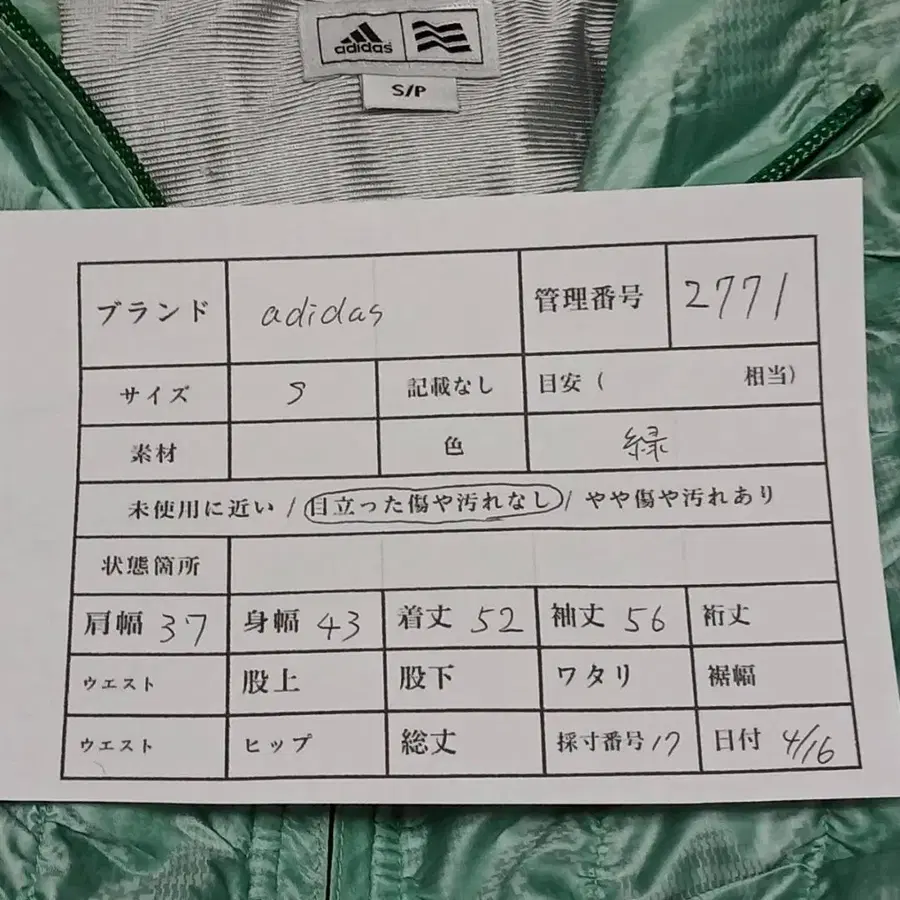 adidas
S/P
ブランド adidas 管理番号 2771
サイズ S 記載なし 目安 ( 相当)
素材 色 緑
未使用に近い / 目立った傷や汚れなし / やや傷や汚れあり
状態箇所
肩幅 37 身幅 43 着丈 52 袖丈 56 裄丈
ウエスト 股上 股下 ワタリ 裾幅
ウエスト ヒップ 総丈 採寸番号 17 日付 4/16